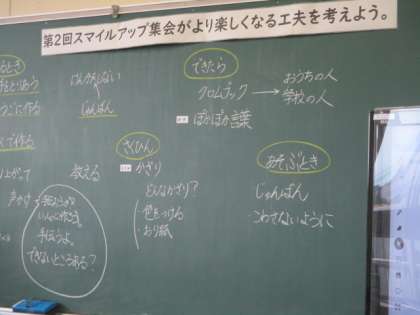 第2回スマイルアップ集会がより楽しくなる工夫を考えよう。
るとき
うごに作る
で作る
上がって
声かけ
けんかしない
じゅんばん
教える
手伝うよ。
できないところある?
できたら
クロムブック → おうちの人
学校の人
ぽかぽか言葉
さくひん
かざり
どんなかざり?
・色をつける
・おり紙
あそぶとき
じゅんばん
こわさないように